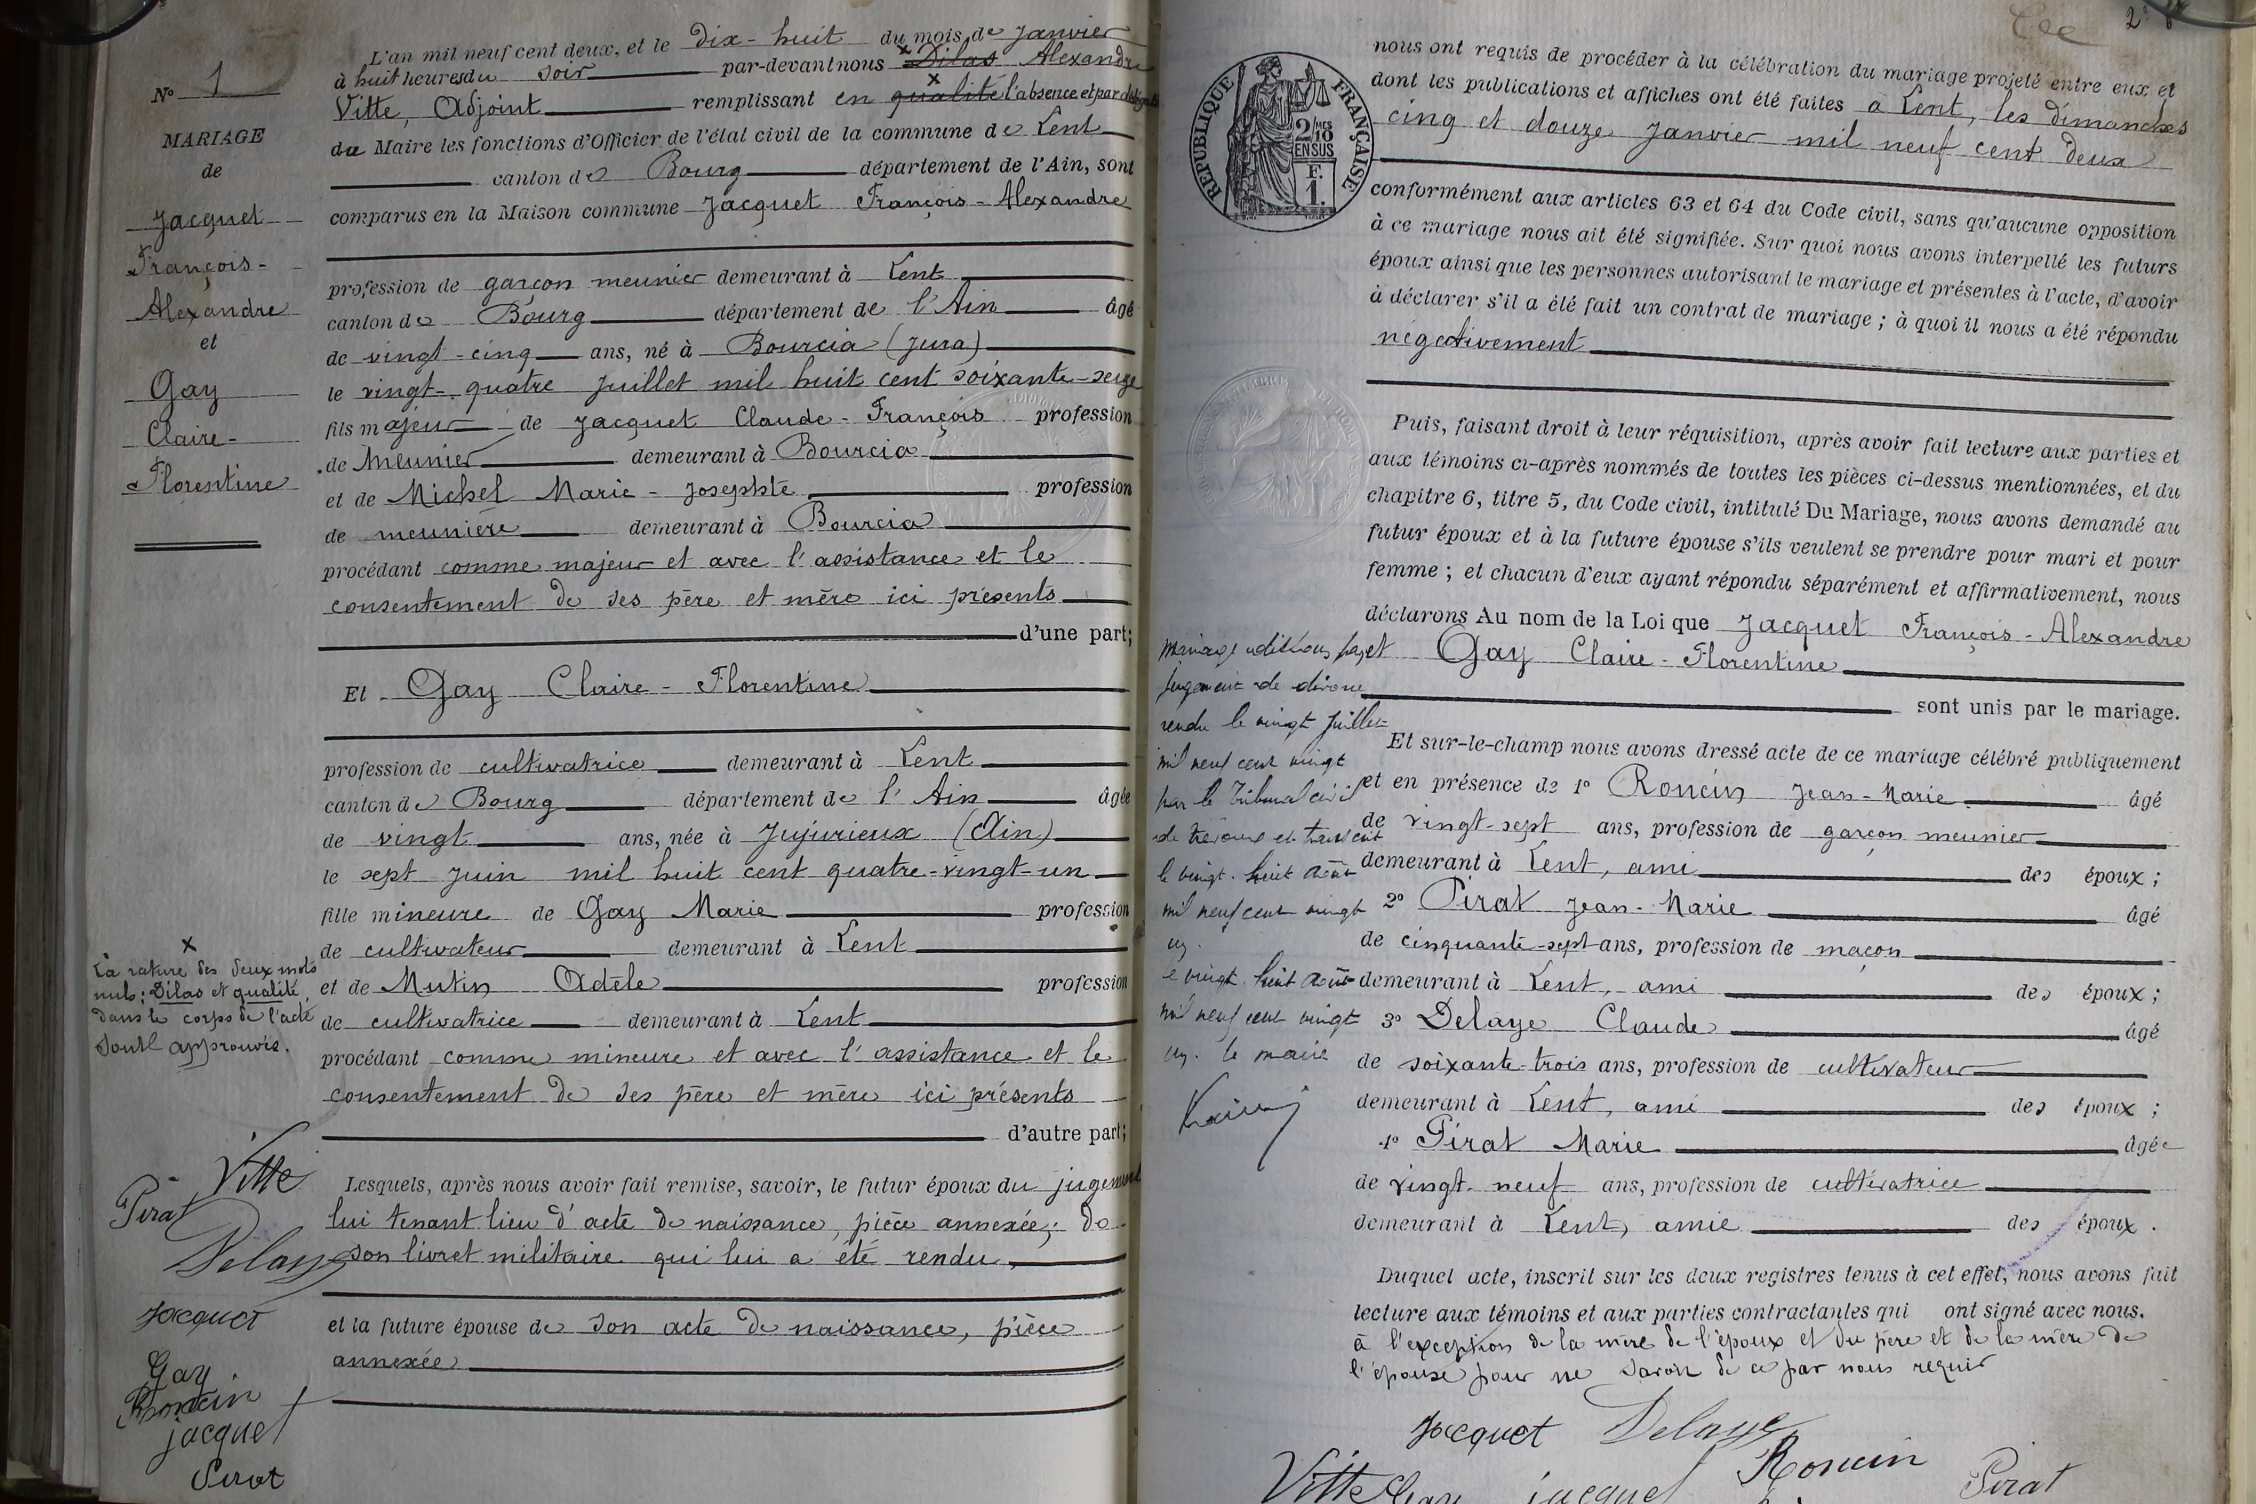 N° 1
MARIAGE
de
Jacquet
François-
Alexandre
et
Gay
Claire-
Florentine
L'an mil neuf cent deux, et le dix-huit du mois de Janvier
à huit heures du soir par-devant nous x Dilas Alexandre
Vitte, Adjoint remplissant en x qualité l'absence et par délégation
du Maire les fonctions d'Officier de l'état civil de la commune de Lent
canton de Bourg département de l'Ain, sont
comparus en la Maison commune Jacquet François-Alexandre
profession de garçon meunier demeurant à Lent
canton de Bourg département de l'Ain âgé
de vingt-cinq ans, né à Bourcia (Jura)
le vingt-quatre Juillet mil huit cent soixante-seize
fils majeur de Jacquet Claude-François profession
de Meunier demeurant à Bourcia
et de Michel Marie-Josephte profession
de meunière demeurant à Bourcia
procédant comme majeur et avec l'assistance et le
consentement de ses père et mère ici présents
d'une part;
Et Gay Claire-Florentine
profession de cultivatrice demeurant à Lent
canton de Bourg département de l'Ain âgée
de vingt ans, née à Jujurieux (Ain)
le sept Juin mil huit cent quatre-vingt-un
fille mineure de Gay Marie profession
de cultivateur demeurant à Lent
et de Mutin Adèle profession
de cultivatrice demeurant à Lent
procédant comme mineure et avec l'assistance et le
consentement de ses père et mère ici présents
d'autre part;
Lesquels, après nous avoir fait remise, savoir, le futur époux du jugement
lui tenant lieu d'acte de naissance, pièce annexée; de
son livret militaire qui lui a été rendu,
et la future épouse de son acte de naissance, pièce
annexée
x
La rature des deux mots
nuls: Dilas et qualité
dans le corps de l'acte
sont approuvés.
Vitte
Pirat
Delaye
Jacquet
Gay
Roncin
jacquet
Pirat
2
RÉPUBLIQUE FRANÇAISE
2/10 MES
EN SUS
F.
1.
nous ont requis de procéder à la célébration du mariage projeté entre eux et
dont les publications et affiches ont été faites à Lent, les dimanches
cinq et douze Janvier mil neuf cent deux
conformément aux articles 63 et 64 du Code civil, sans qu'aucune opposition
à ce mariage nous ait été signifiée. Sur quoi nous avons interpellé les futurs
époux ainsi que les personnes autorisant le mariage et présentes à l'acte, d'avoir
à déclarer s'il a été fait un contrat de mariage; à quoi il nous a été répondu
négativement
Puis, faisant droit à leur réquisition, après avoir fait lecture aux parties et
aux témoins ci-après nommés de toutes les pièces ci-dessus mentionnées, et du
chapitre 6, titre 5, du Code civil, intitulé Du Mariage, nous avons demandé au
futur époux et à la future épouse s'ils veulent se prendre pour mari et pour
femme; et chacun d'eux ayant répondu séparément et affirmativement, nous
déclarons Au nom de la Loi que Jacquet François-Alexandre
et Gay Claire-Florentine
sont unis par le mariage.
Et sur-le-champ nous avons dressé acte de ce mariage célébré publiquement
et en présence de 1° Roncin Jean-Marie âgé
de vingt-sept ans, profession de garçon meunier
demeurant à Lent, ami des époux;
2° Pirat Jean-Marie âgé
de cinquante-sept ans, profession de maçon
demeurant à Lent, ami des époux;
3° Delaye Claude âgé
de soixante-trois ans, profession de cultivateur
demeurant à Lent, ami des époux;
4° Pirat Marie âgée
de vingt-neuf ans, profession de cultivatrice
demeurant à Lent, amie des époux.
Duquel acte, inscrit sur les deux registres tenus à cet effet, nous avons fait
lecture aux témoins et aux parties contractantes qui ont signé avec nous.
à l'exception de la mère de l'époux et du père et de la mère de
l'épouse pour ne savoir de ce par nous requis
mariage dissous par
jugement de divorce
rendu le vingt Juillet
mil neuf cent vingt
par le Tribunal civil
de Trévoux et transcrit
le vingt-huit août
mil neuf cent vingt
un.
le vingt huit août
mil neuf cent vingt
un. le maire
Jacquet Delaye
Roncin
Vitte Gay jacquet Pirat